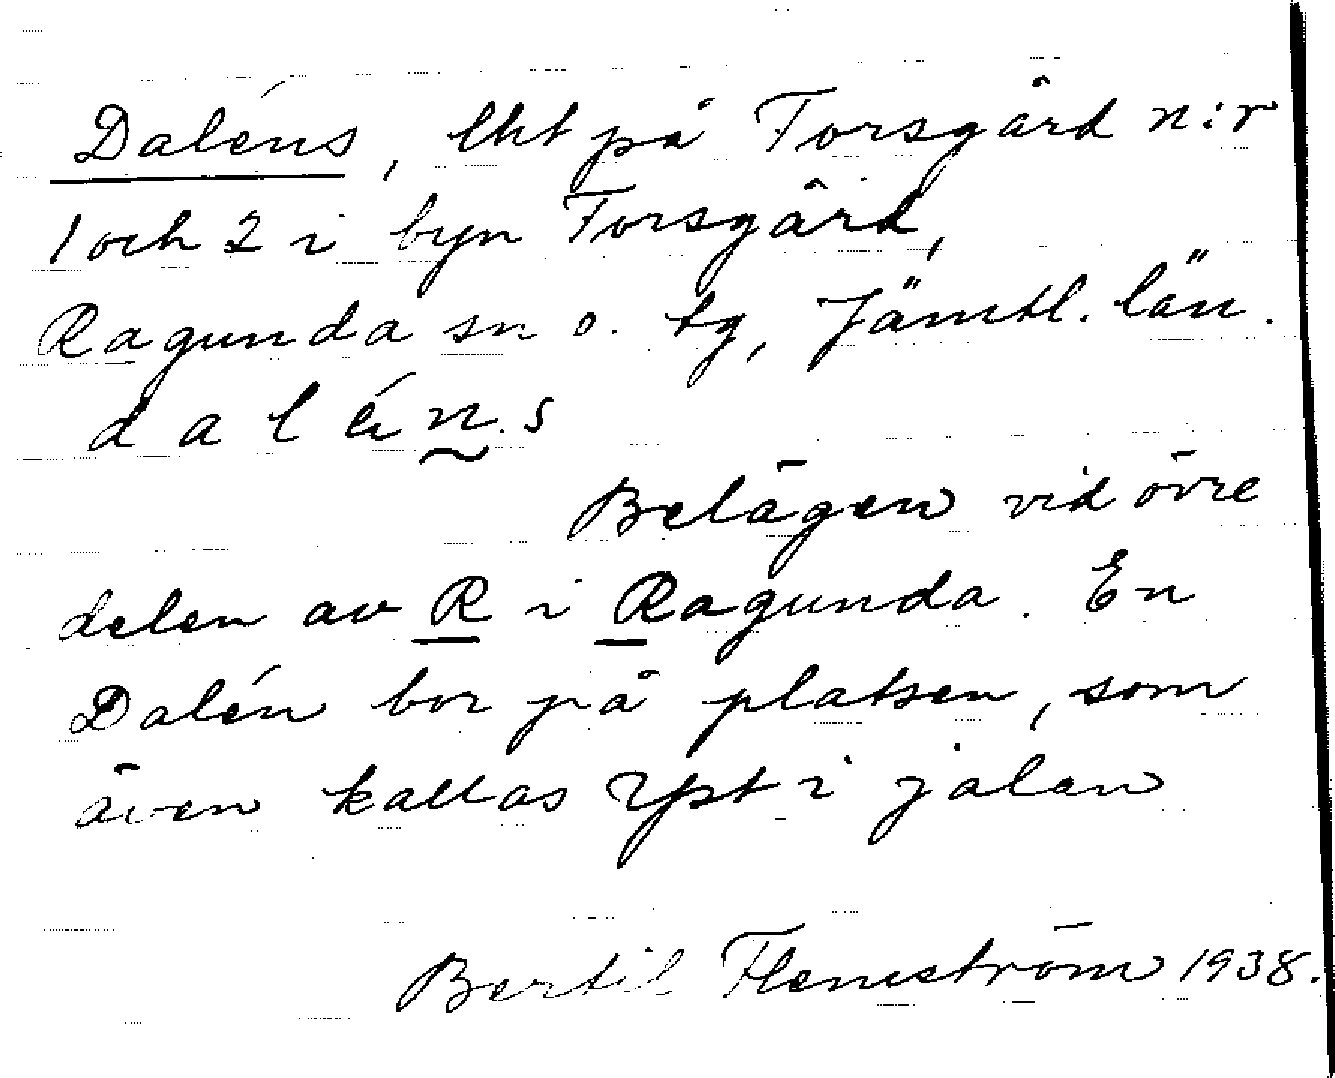 Daléns, lht på Forsgård n:r
1 och 2 i byn Forsgård,
Ragunda sn o. tg, Jämtl. län.
d a l é n. s
Belägen vid övre
delen av R i Ragunda. En
Dalén bor på platsen, som
även kallas i jalan
Bertil Flemström 1938.